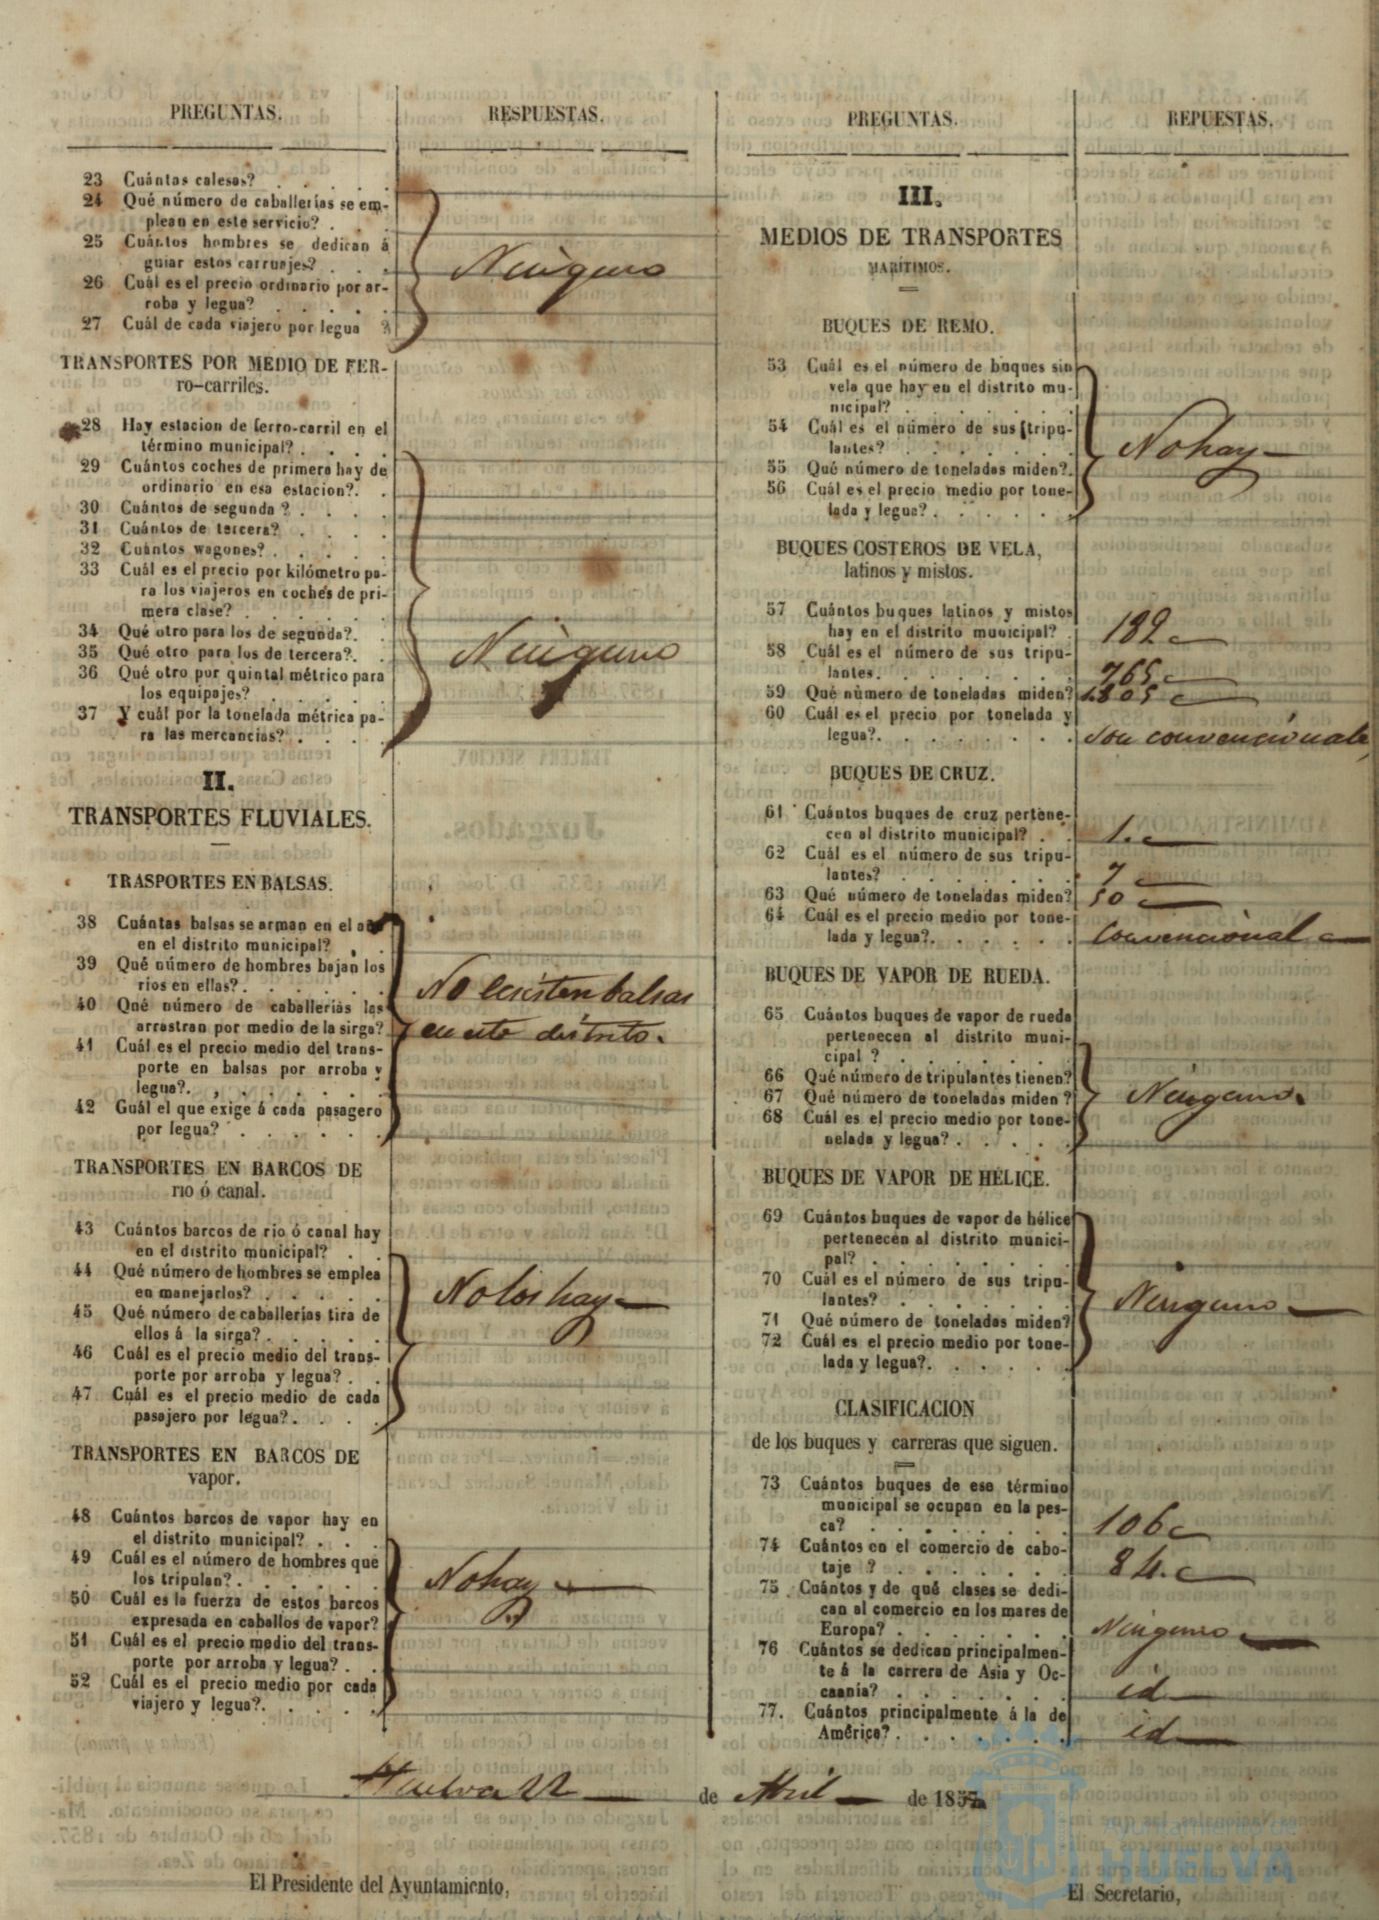 PREGUNTAS.
RESPUESTAS.
23 Cuántas calesas? . . . . .
24 Qué número de caballerías se em-
plean en este servicio? . . . .
25 Cuántos hombres se dedican á
guiar estos carruajes? . . . .
26 Cuál es el precio ordinario por ar-
roba y legua? . . . . .
27 Cuál de cada viajero por legua ?
Ninguno
TRANSPORTES POR MEDIO DE FER-
ro-carriles.
28 Hay estacion de ferro-carril en el
término municipal? . . . .
29 Cuántos coches de primera hay de
ordinario en esa estacion? . .
30 Cuántos de segunda ? . . . .
31 Cuántos de tercera? . . . .
32 Cuántos wagones? . . . . .
33 Cuál es el precio por kilómetro pa-
ra los viajeros en coches de pri-
mera clase? . . . . . .
34 Qué otro para los de segunda? . .
35 Qué otro para los de tercera? . .
36 Qué otro por quintal métrico para
los equipajes? . . . . .
37 Y cuál por la tonelada métrica pa-
ra las mercancias? . . . .
Ninguno
II.
TRANSPORTES FLUVIALES.
TRASPORTES EN BALSAS.
38 Cuántas balsas se arman en el año
en el distrito municipal? . .
39 Qué número de hombres bajan los
rios en ellas? . . . . . .
40 Qué número de caballerias las
arrastran por medio de la sirga?
41 Cuál es el precio medio del trans-
porte en balsas por arroba y
legua? . , . . . . .
42 Guál el que exige á cada pasagero
por legua? . . . . . .
No ecsisten balsas
en este distrito.
TRANSPORTES EN BARCOS DE
rio ó canal.
43 Cuántos barcos de rio ó canal hay
en el distrito municipal? . .
44 Qué número de hombres se emplea
en manejarlos? . . . . .
45 Qué número de caballerías tira de
ellos á la sirga? . . . . .
46 Cuál es el precio medio del trans-
porte por arroba y legua? . .
47 Cuál es el precio medio de cada
pasajero por legua? . . . .
No los hay
TRANSPORTES EN BARCOS DE
vapor.
48 Cuántos barcos de vapor hay en
el distrito municipal? . . .
49 Cuál es el número de hombres que
los tripulan? . . . . . .
50 Cuál es la fuerza de estos barcos
expresada en caballos de vapor?
51 Cuál es el precio medio del trans-
porte por arroba y legua? . .
52 Cuál es el precio medio por cada
viajero y legua? . . . . .
No hay
PREGUNTAS.
REPUESTAS.
III.
MEDIOS DE TRANSPORTES
MARÍTIMOS.
BUQUES DE REMO.
53 Cuál es el número de buques sin
vela que hay en el distrito mu-
nicipal? . . . . . .
54 Cuál es el número de sus tripu-
lantes? . . . . . .
55 Qué número de toneladas miden? .
56 Cuál es el precio medio por tone-
lada y legua? . . . . . .
No hay
BUQUES COSTEROS DE VELA,
latinos y mistos.
57 Cuántos buques latinos y mistos
hay en el distrito municipal? .
182
58 Cuál es el número de sus tripu-
lantes. . . . . . . .
765
59 Qué número de toneladas miden?
1805
60 Cuál es el precio por tonelada y
legua? . . . . . . .
son convencionales
BUQUES DE CRUZ.
61 Cuántos buques de cruz pertene-
cen al distrito municipal? . .
1.
62 Cuál es el número de sus tripu-
lantes? . . . . . . .
7
63 Qué número de toneladas miden?
50
64 Cuál es el precio medio por tone-
lada y legua? . . . . . .
convencional
BUQUES DE VAPOR DE RUEDA.
65 Cuántos buques de vapor de rueda
pertenecen al distrito muni-
cipal ? . . . . . . .
66 Qué número de tripulantes tienen?
67 Qué número de toneladas miden ?
68 Cuál es el precio medio por tone-
nelada y legua? . . . . .
Ninguno.
BUQUES DE VAPOR DE HÉLICE.
69 Cuántos buques de vapor de hélice
pertenecen al distrito munici-
pal? . . . . . . .
70 Cuál es el número de sus tripu-
lantes? . . . . . .
71 Qué número de toneladas miden?
72 Cuál es el precio medio por tone-
lada y legua? . . . . . .
Ninguno
CLASIFICACION
de los buques y carreras que siguen.
73 Cuántos buques de ese término
municipal se ocupan en la pes-
ca? . . . . . . .
106
74 Cuántos en el comercio de cabo-
taje ? . . . . . . .
84.
75 Cuántos y de qué clases se dedi-
can al comercio en los mares de
Europa? . . . . . . .
Ninguno
76 Cuántos se dedican principalmen-
te á la carrera de Asia y Oc-
ceanía? . . . . . . .
id
77. Cuántos principalmente á la de
América? . . . . . . .
id
Huelva 22 de Abril de 185
El Presidente del Ayuntamiento,
El Secretario,
Ayuntamiento de
HUELVA